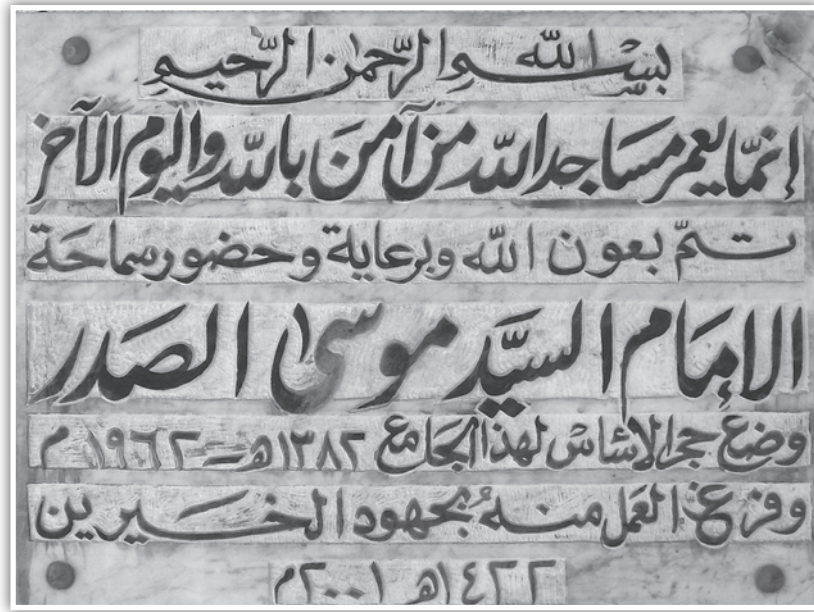 بسم الله الرحمن الرحيم
إنّما يعمر مسَاجد الله من آمنَ بالله واليوم الآخر
تــمّ بعون الله وبرعاية وحضور سماحَة
الإمَام السيَّد موسىٰ الصَدر
وضع حجر الاساسْ لهذا الجَامع ١٣٨٢هـ - ١٩٦٢ م
وفرغ العَمل منهُ بجهود الخَــيرين
١٤٢٢هـ ٢٠٠١م